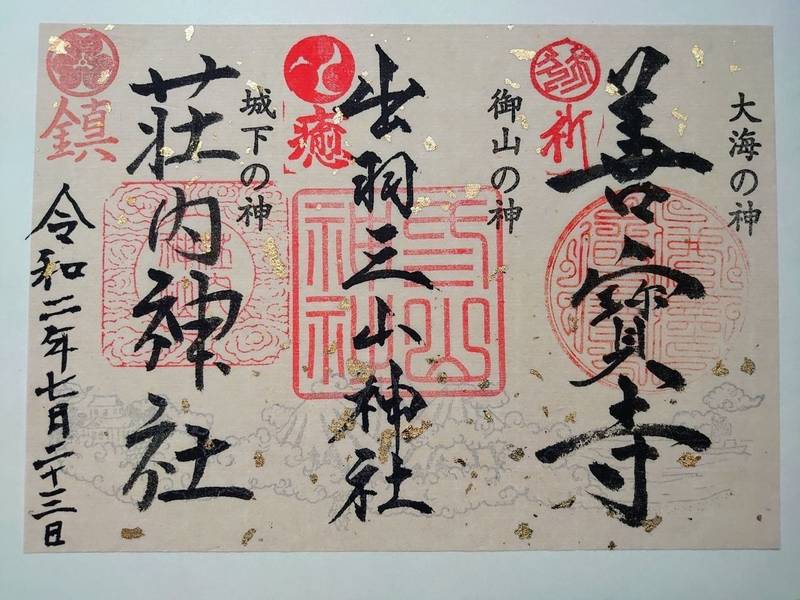 大海の神
祈
善寳寺
御山の神
癒
出羽三山神社
城下の神
鎮
荘内神社
令和二年七月二十三日